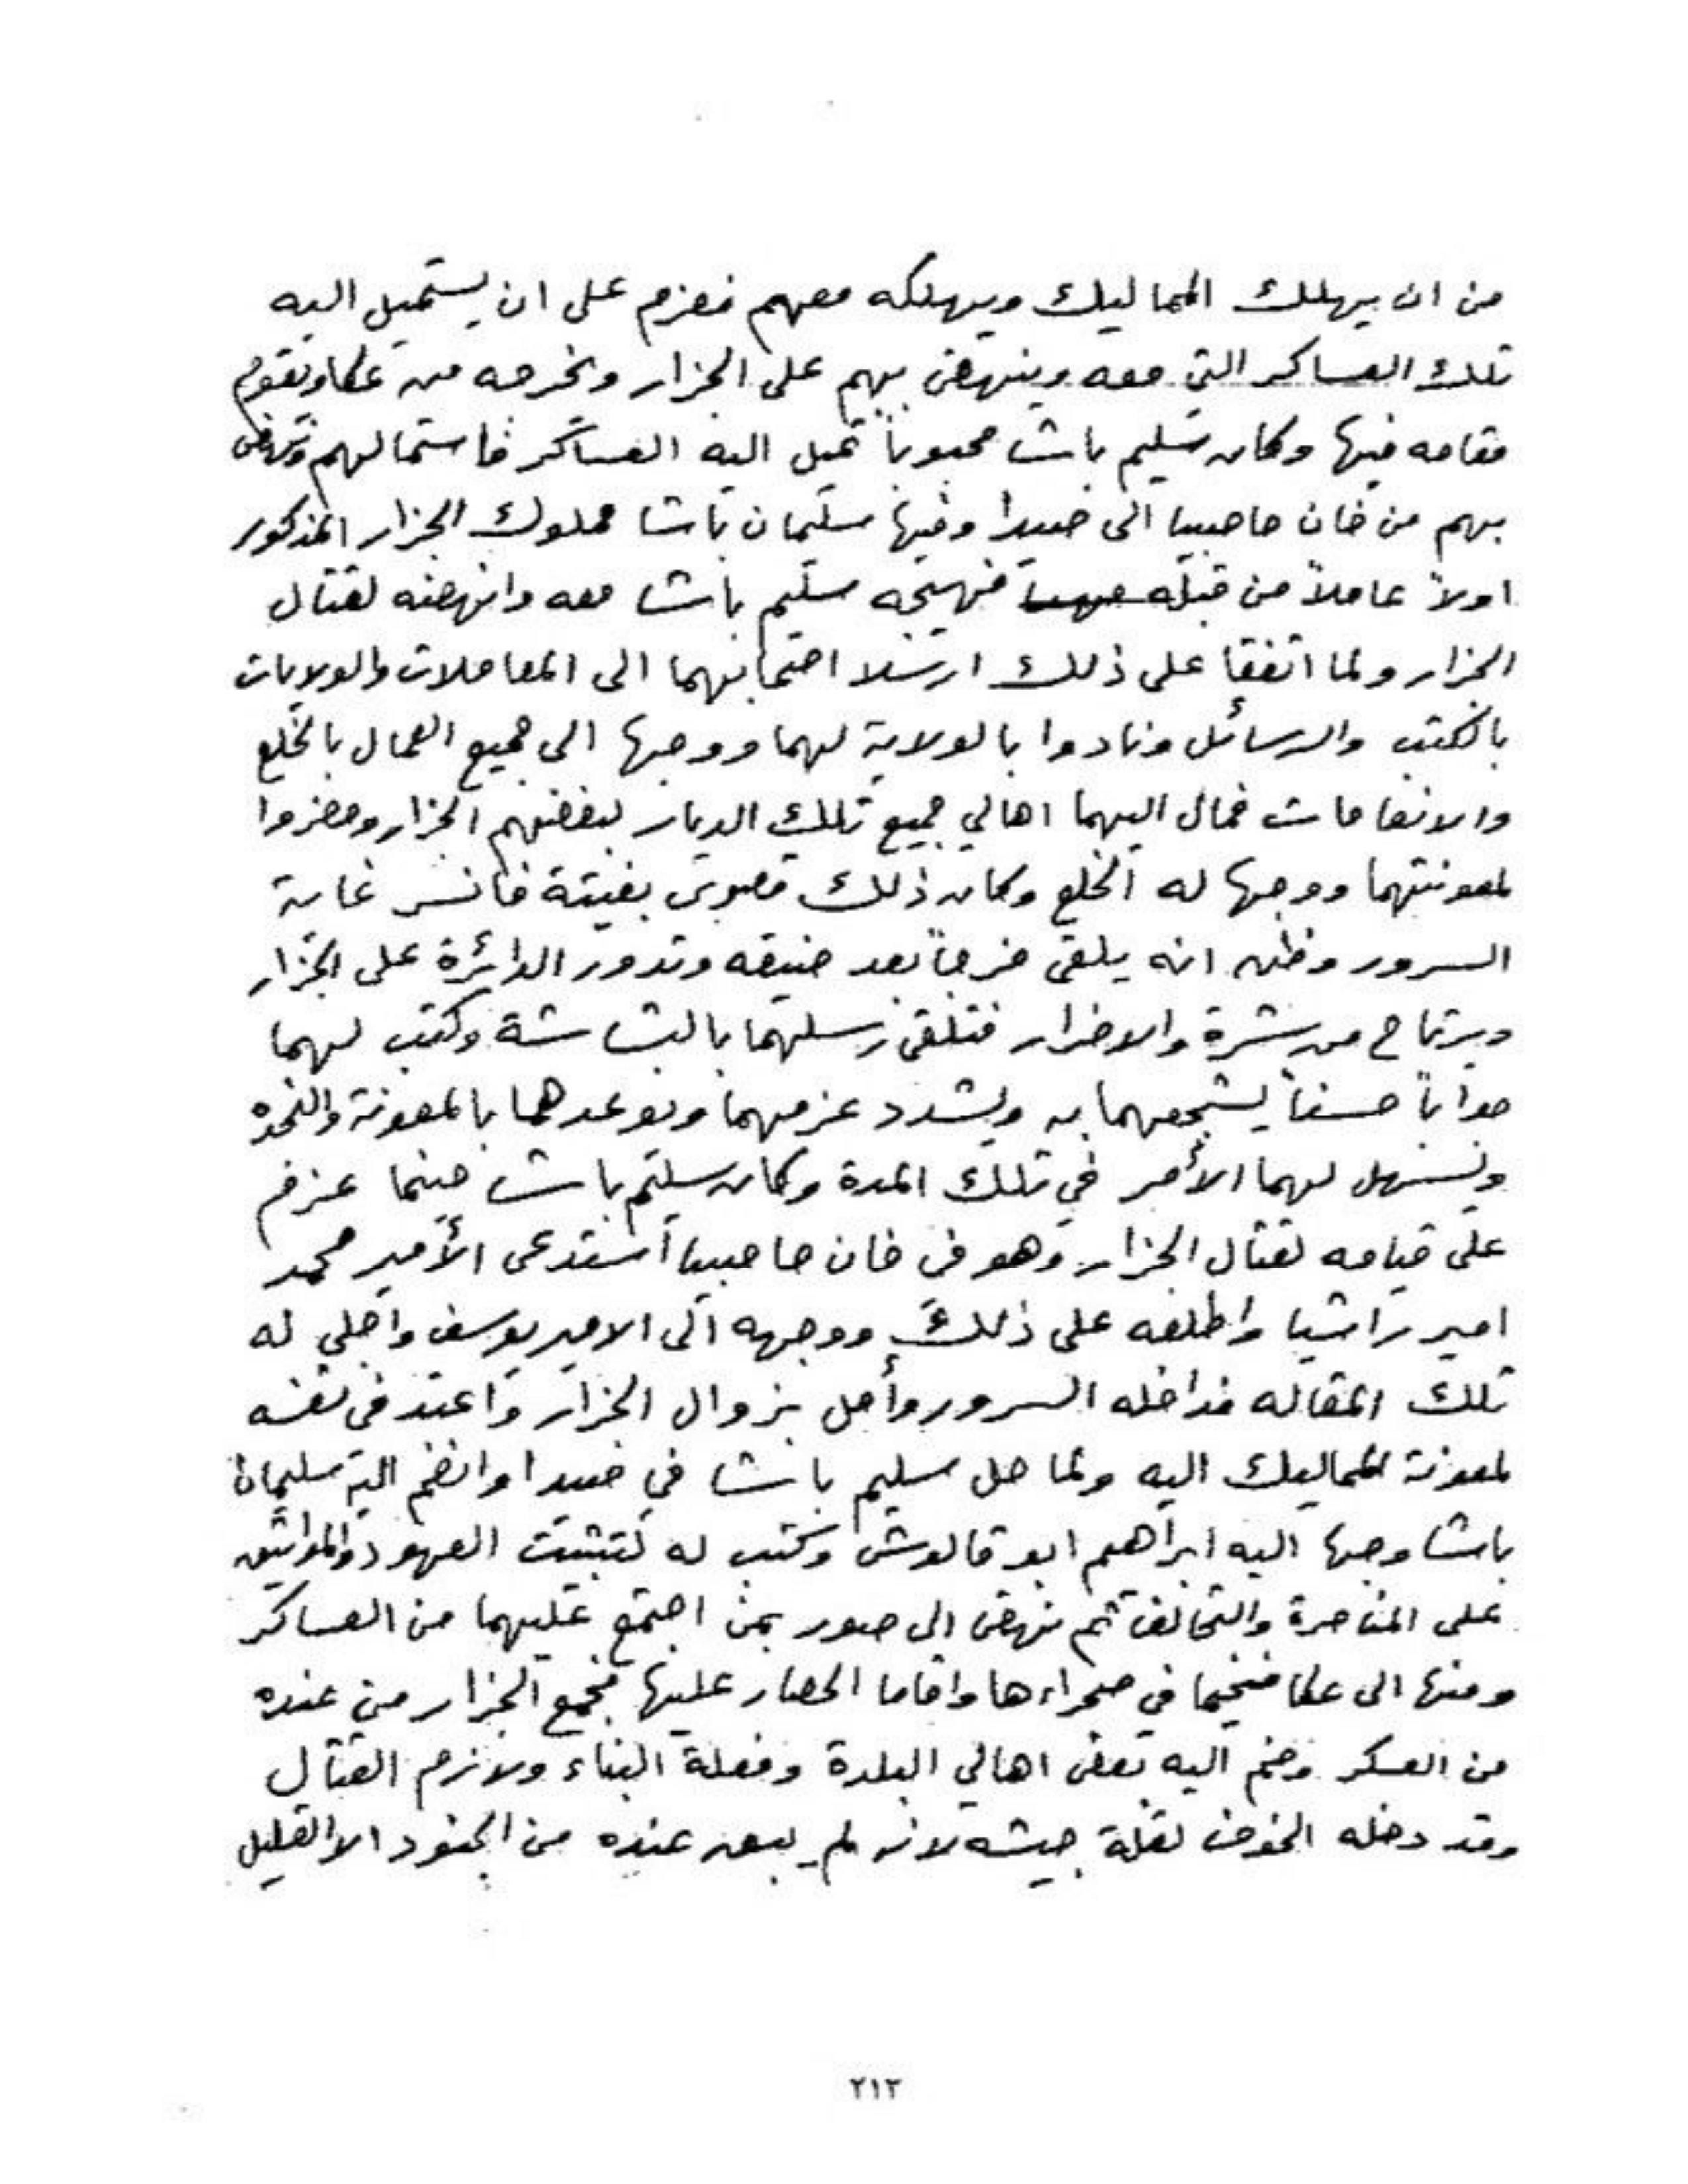 من ان يهلك المماليك ويهلكه معهم فعزم على ان يستميل اليه
تلك العساكر التي معه وينهض بهم على الجزار ويخرجه من عكا ويقوم
مقامه فيها وكان سليم باشا محبوباً تميل اليه العساكر فاستمالهم ونهض
بهم من خان حاصبيا الى صيدا وفيها سليمان باشا مملوك الجزار المذكور
اولاً عاملاً من قبله فهيجه سليم باشا معه وانهضه لقتال
الجزار ولما اتفقا على ذلك ارسلا اصحابهما الى المعاملات والولايات
بالكتب والرسائل ونادوا بالولاية لهما ووجها الى جميع العمال بالخلع
والانعامات فمال اليهما اهالي جميع تلك الديار لبغضهم الجزار وحضروا
لمعونتهما ووجها له الخلع وكان ذلك بغيته فانسر غاية
السرور وظن انه يلقى فرجاً بعد ضيقه وتدور الدائرة على الجزار
ويرتاح من شره والاضرار فتلقى رسلهما بالبشاشة وكتب لهما
جواباً حسناً يشجعهما به ويشدد عزمهما ويوعدهما بالمعونة والنجده
ويسهل لهما الأمر في تلك المدة وكان سليم باشا حينما عزم
على قيامه لقتال الجزار وهو في خان حاصبيا استدعى الأمير محمد
امير راشيا واطلعه على ذلك ووجهه الى الامير يوسف واجلي له
تلك المقاله فداخله السرور وأمل بزوال الجزار واعتد في نفسه
لمعونة المماليك اليه ولما حل سليم باشا في صيدا وانضم اليه سليمان
باشا وجها اليه ابراهيم ابو قالوش وكتب له لتثبيت العهود والمواثيق
على المناصرة والتحالف ثم نهض الى صور بمن اجتمع عليهما من العساكر
ومنها الى عكا فخيما في صحراءها واقاما الحصار عليها فجمع الجزار من عنده
من العسكر وضم اليه بعض اهالي البلدة وفعلة البناء ولازم القتال
وقد دخله الخوف لقلة جيشه لانه لم يبق عنده من الجنود الا القليل
٢١٢